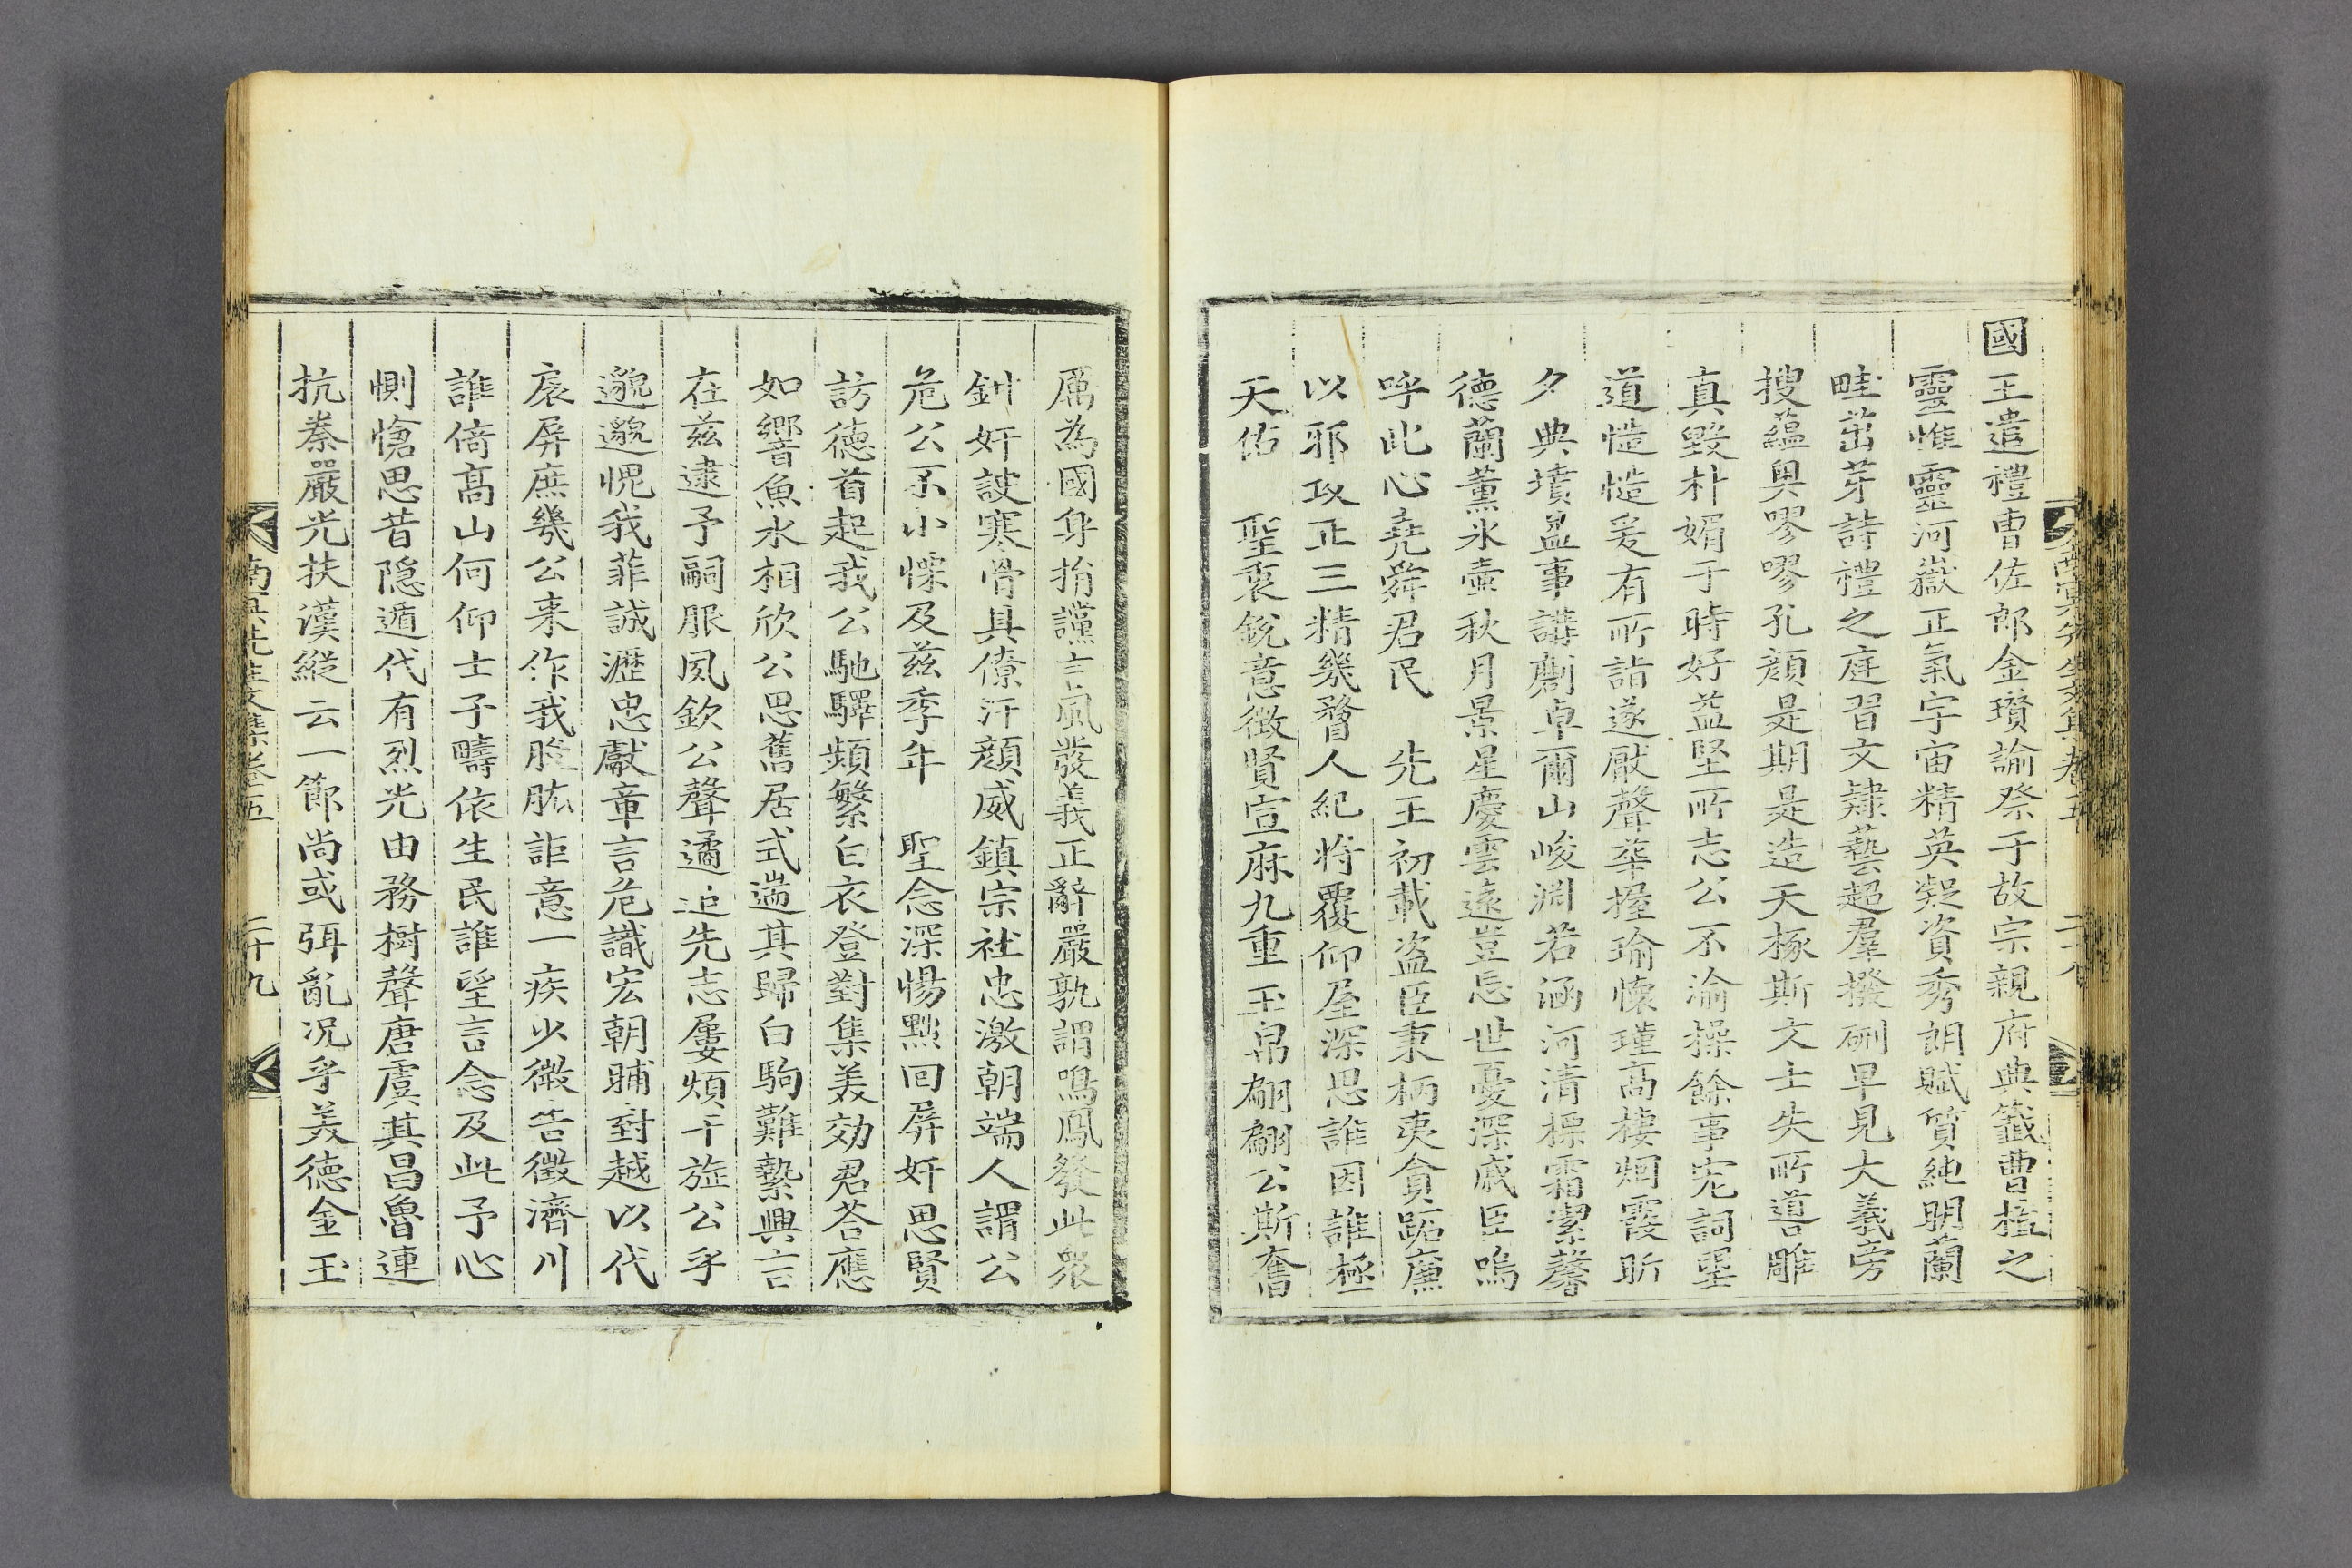 南冥先生文集卷五
國王遣禮曹佐郎金瓚諭祭于故宗親府典籤曹植之
靈惟靈河嶽正氣宇宙精英凝資秀朗賦質純明蘭
畦茁芽詩禮之庭習文肄藝超羣撥硎早見大義旁
搜蘊奧嘐嘐孔顔是期是造天椓斯文士失所道雕
真毀朴媚于時好益堅所志公不渝操餘事宄詞墨
道慥慥爰有所詣遂厭聲華握瑜懷瑾高棲烟霞昕
夕典墳益事講劘卓爾山峻淵若涵河清標霜潔馨
德蘭薰氷壷秋月景星慶雲遠豈忘世憂深戚臣嗚
呼此心堯舜君民 先王初載盜臣秉柄夷貪跖廉
以邪攻正三精幾瞀人紀将覆仰屋深思誰因誰極
天佑 聖衷銳意徵賢宣麻九重玉帛翩翩公斯奮
厲為國身捐讜言風發義正辭嚴孰謂鳴鳳發此衆
鉗奸諛寒骨具僚汗顔威鎮宗社忠激朝端人謂公
危公不小慄及茲季年 聖念深惕黜回屏奸思賢
訪德首起我公馳驛頻繁白衣登對集美効君荅應
如響魚水相欣公思舊居式遄其歸白駒難縶興言
在兹逮予嗣服夙欽公聲遹追先志屢煩干旌公乎
邈邈愧我菲誠瀝忠獻章言危識宏朝晡對越以代
扆屏庶幾公来作我股肱詎意一疾少微告徵濟川
誰倚高山何仰士子疇依生民誰望言念及此予心
惻愴思昔隠遁代有烈光由務樹聲唐虞其昌魯連
抗秦嚴光扶漢縱云一節尚或弭亂况乎美德金玉
南冥先生文集卷五 二十九